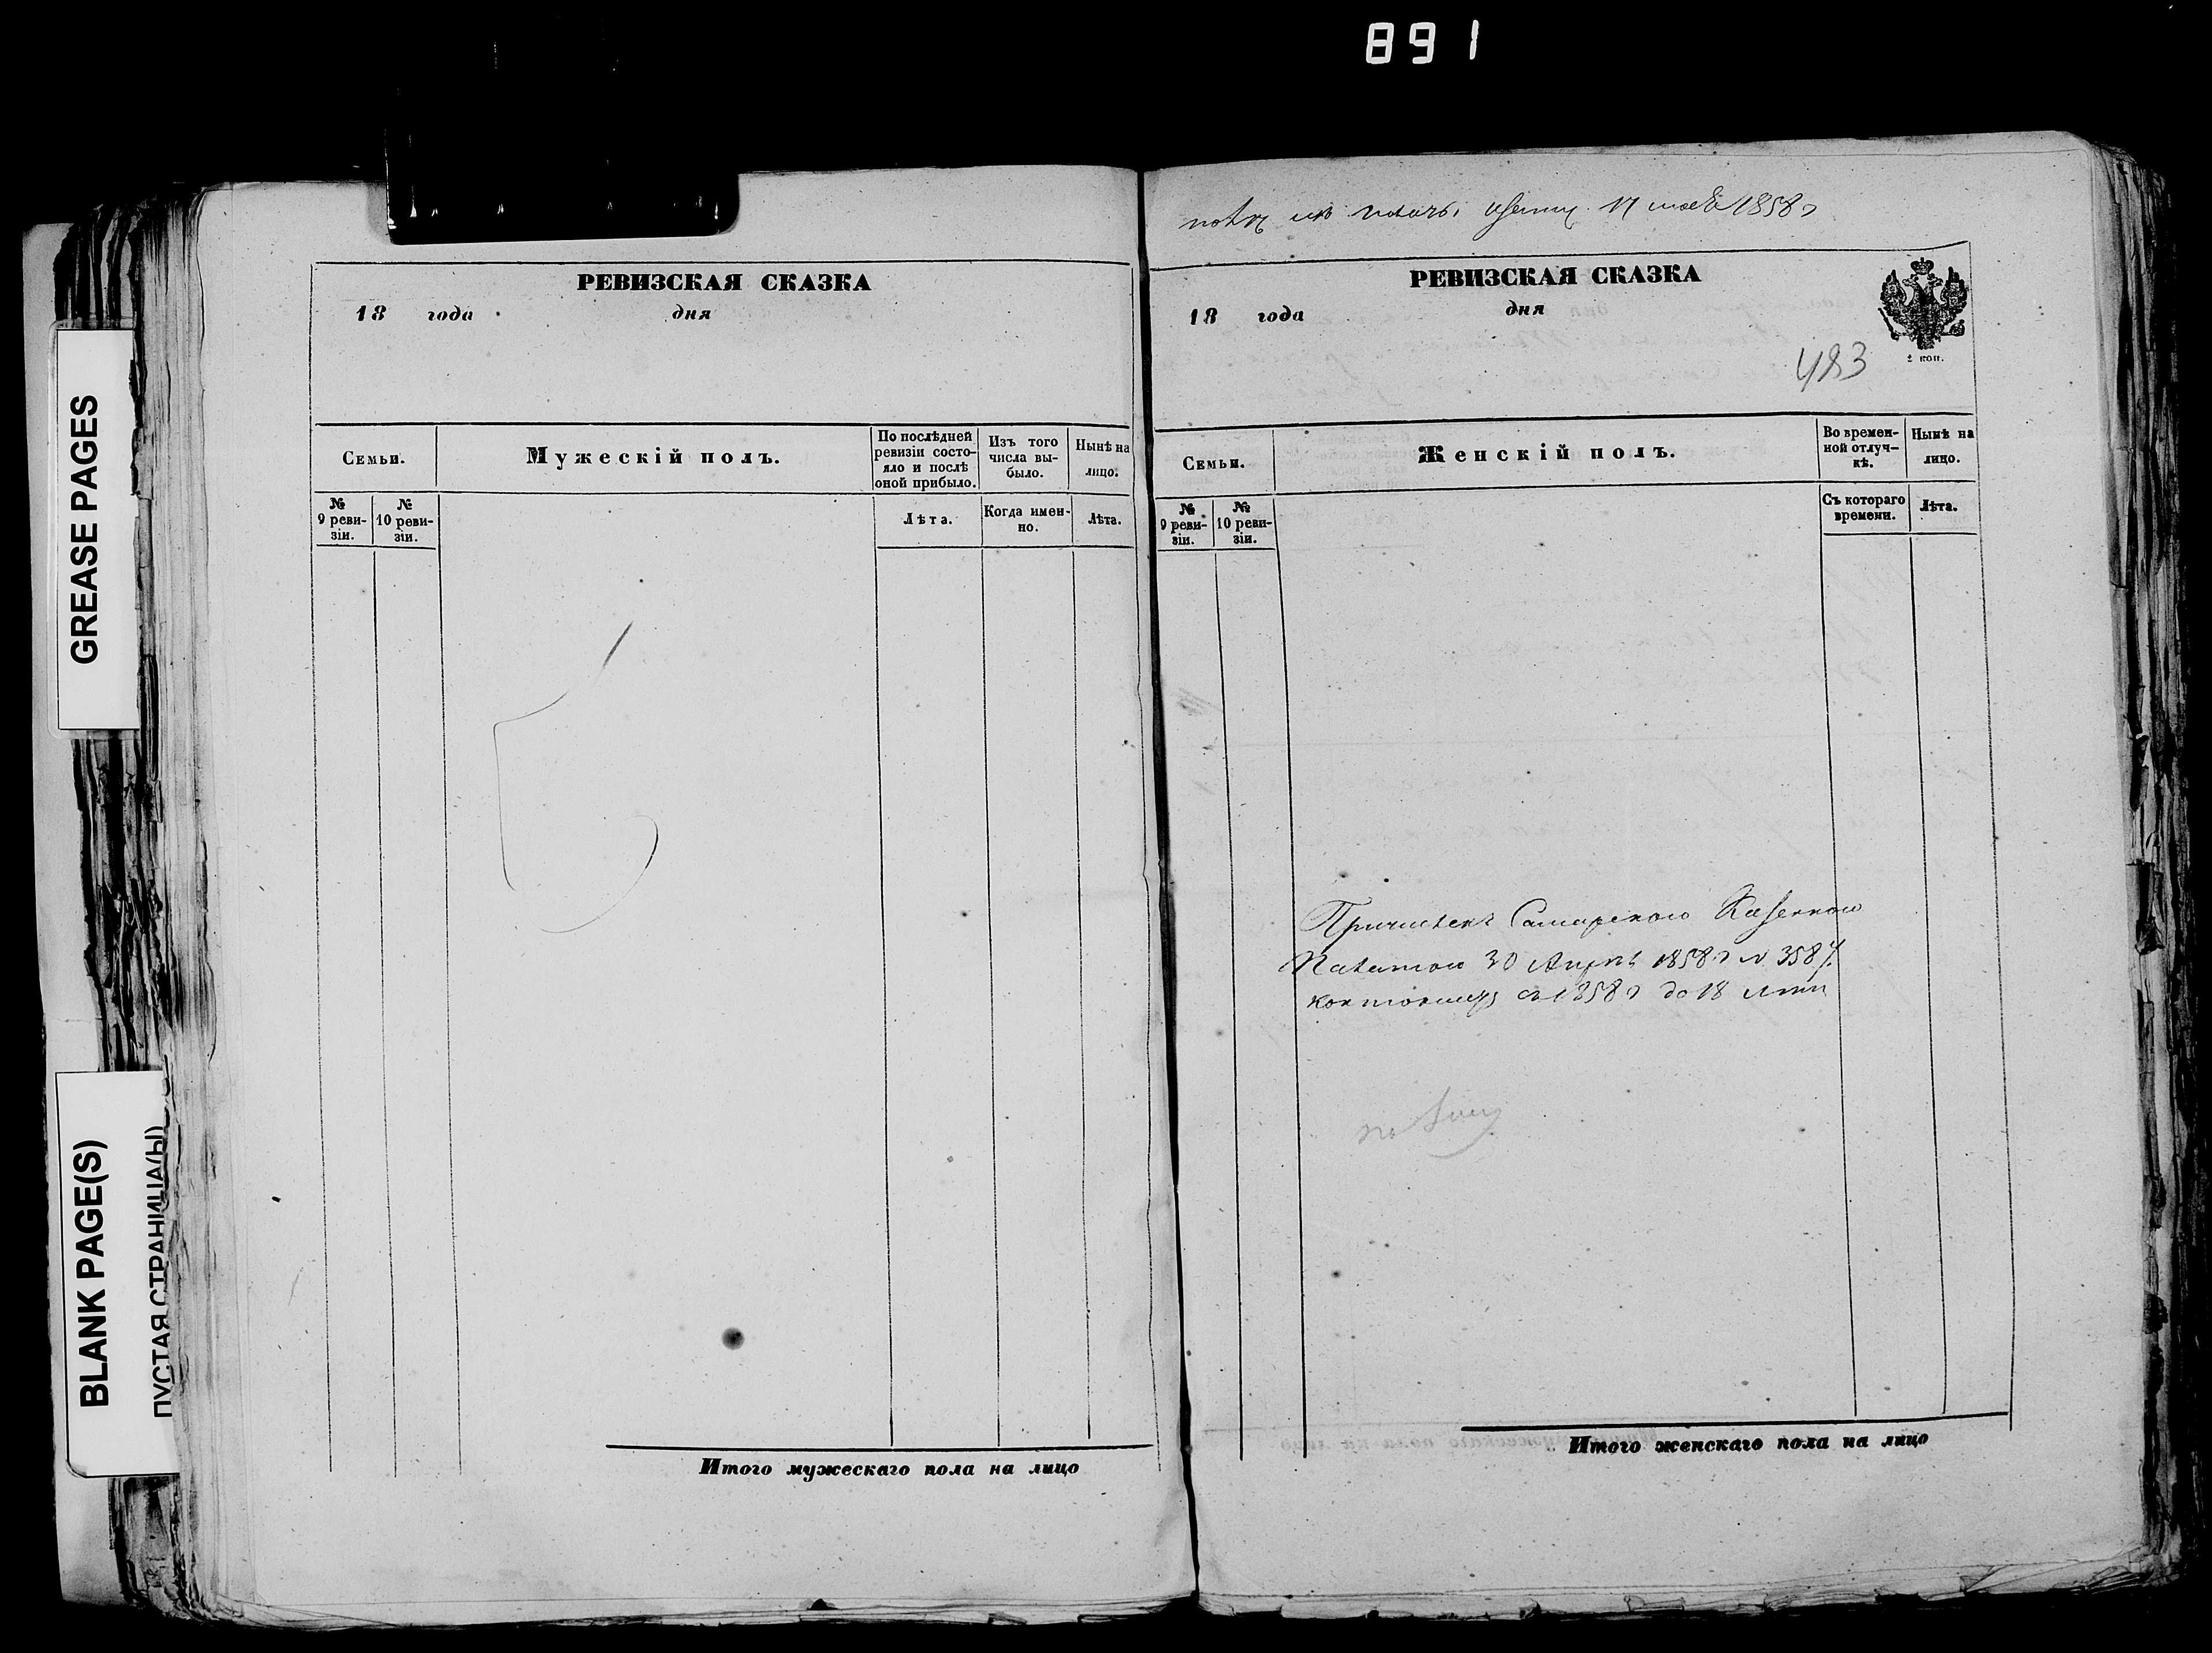 891
GREASE PAGES
BLANK PAGE(S)
ПУСТАЯ СТРАНИЦА(Ы)
РЕВИЗСКАЯ СКАЗКА
18 года дня
Семьи.
Мужескій полъ.
По послѣдней
ревизіи состо-
яло и послѣ
оной прибыло.
Изъ того
числа вы-
было.
Нынѣ на
лицо.
№
9 реви-
зіи.
№
10 реви-
зіи.
Лѣта.
Когда имен-
но.
Лѣта.
Итого мужескаго пола на лицо
17 1858
РЕВИЗСКАЯ СКАЗКА
18 года дня
2 коп.
483
Семьи.
Женскій полъ.
Во времен-
ной отлуч-
кѣ.
Нынѣ на
лицо.
№
9 реви-
зіи.
№
10 реви-
зіи.
Съ котораго
времени.
Лѣта.
Причислен Самарскою Казенною
Палатою 30 1858 № 3584
1858 до 18
Итого женскаго пола на лицо